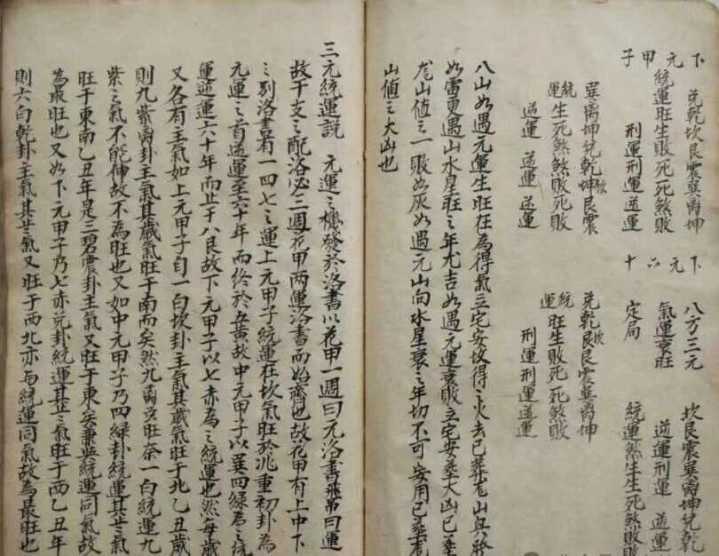 下元甲子
兑乾坎艮震巽离坤
統運旺生敗死死煞敗
刑運刑運逆運
巽离坤兑乾坎艮震
統運生死煞煞敗死敗
逆運 逆運 逆運
下元六十
八方三元 坎艮震巽离坤兑乾
氣運衰旺 逆運刑運 逆運
定局 統運煞生生死煞敗
兑乾坎艮震巽离坤
統運旺生敗死死煞敗
刑運刑運逆運
八山如遇元運生旺在為得氣立宅安坟得之火去已葬龙山與於
如雷更遇山水星旺之年尤吉如遇元運衰敗立宅安葬大凶已
龙山值之一敗如灰如遇元山向水星衰之年切不可妄用已葬龙
山值之大凶也
三元統運説 元運之機發於洛書以花甲一週曰元洛書飛吊曰運
故干支之配洛必三週花甲兩運洛書而始齊也故花甲有上中下
之别洛書有一四七之運上元甲子統運在坎氣旺於兆重初卦為
元運之首逆運至六十年而終於五黄故中元甲子以巽四緑為之統
運逆運六十年而止于八艮故下元甲子以七赤為之統運也然每歲
又各有主氣如上元甲子自一白坎卦主氣其歲氣旺于北乙丑歲
則九紫离卦主氣其歲氣旺于南而矣然九离交旺奈一白統運九
紫之氣不能伸故不為旺也又如中元甲子乃四緑卦統運其廿氣
旺于東南乙丑年是三碧震卦主氣又旺于東矣兼與統運同氣故
為最旺也又如下元甲子乃七赤兑卦統運其廿之氣旺于西乙丑年
則六白乾卦主氣其廿氣又旺于西北亦与統運同氣故為最旺也